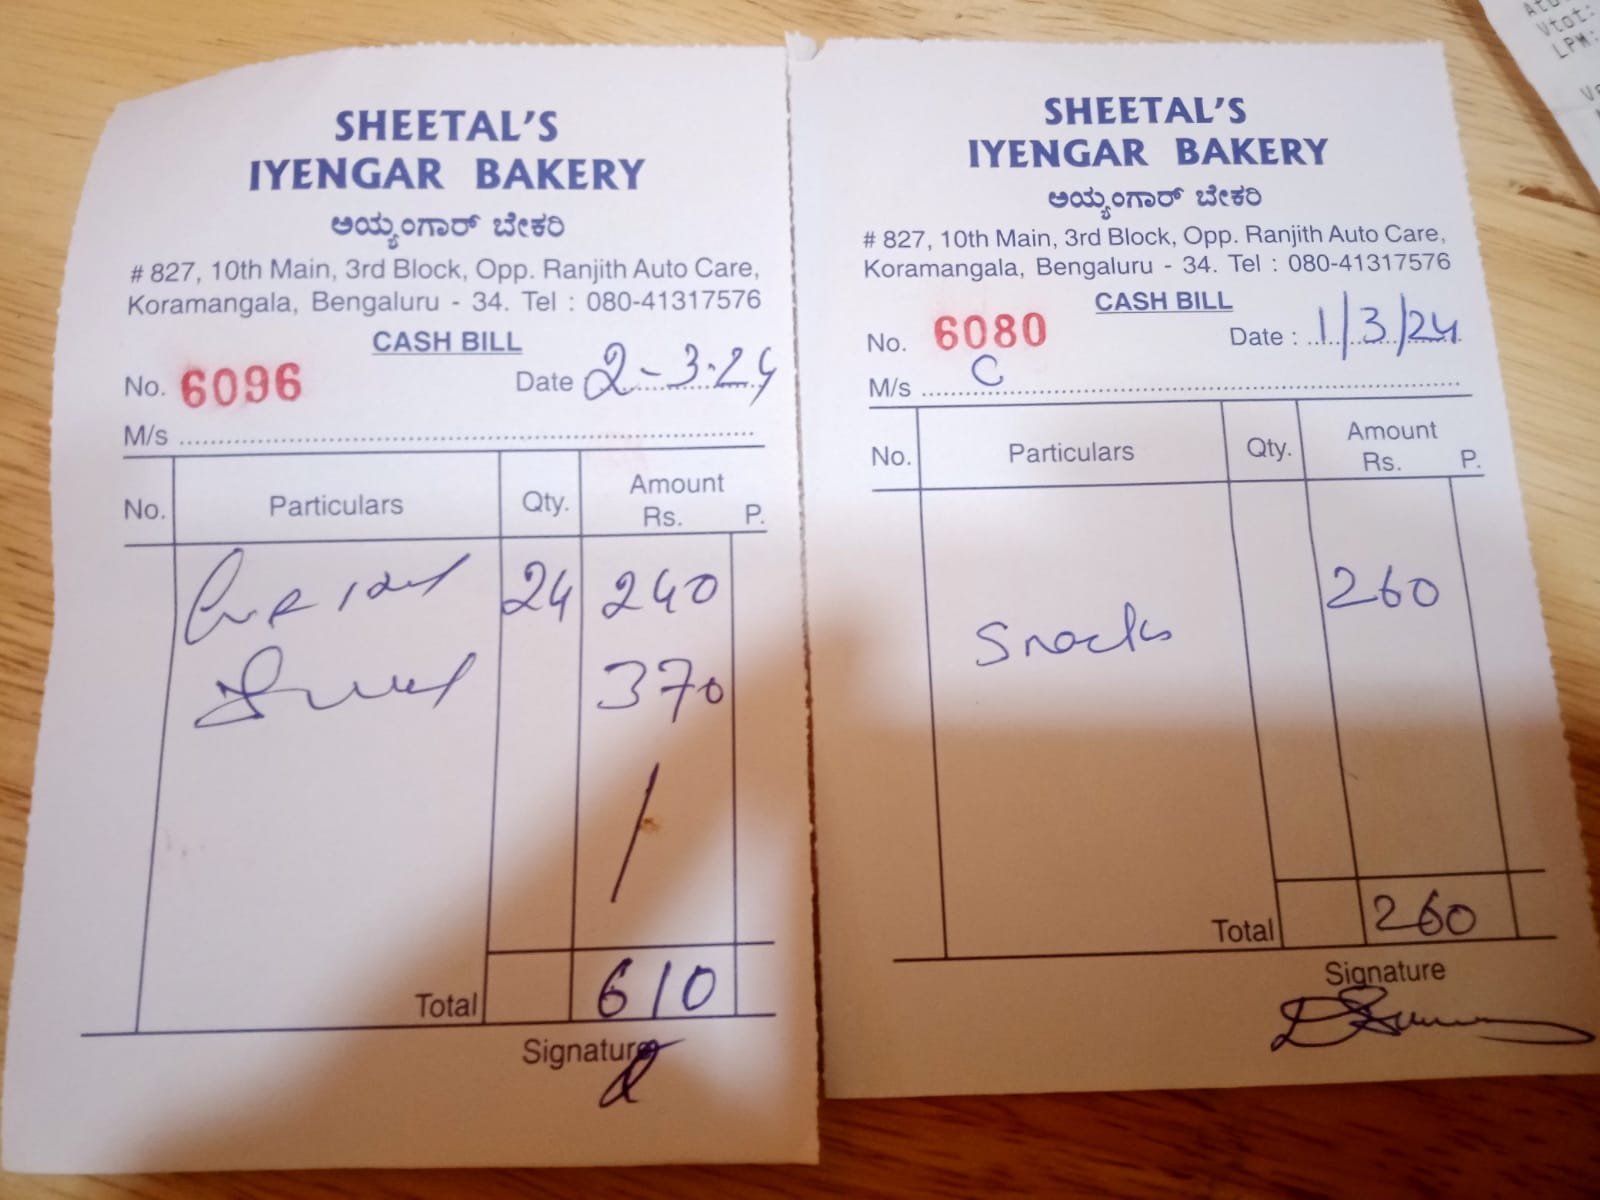 SHEETAL'S
IYENGAR BAKERY
ಅಯ್ಯಂಗಾರ್ ಬೇಕರಿ
# 827, 10th Main, 3rd Block, Opp. Ranjith Auto Care,
Koramangala, Bengaluru - 34. Tel : 080-41317576
CASH BILL
No. 6096 Date 2-3-24
M/s
No. Particulars Qty. Amount
Rs. P.
24 240
370
/
Total 610
Signature
SHEETAL'S
IYENGAR BAKERY
ಅಯ್ಯಂಗಾರ್ ಬೇಕರಿ
# 827, 10th Main, 3rd Block, Opp. Ranjith Auto Care,
Koramangala, Bengaluru - 34. Tel : 080-41317576
CASH BILL
No. 6080 Date : 1/3/24
M/s C
No. Particulars Qty. Amount
Rs. P.
Snacks 260
Total 260
Signature
Vtot:
LPM: